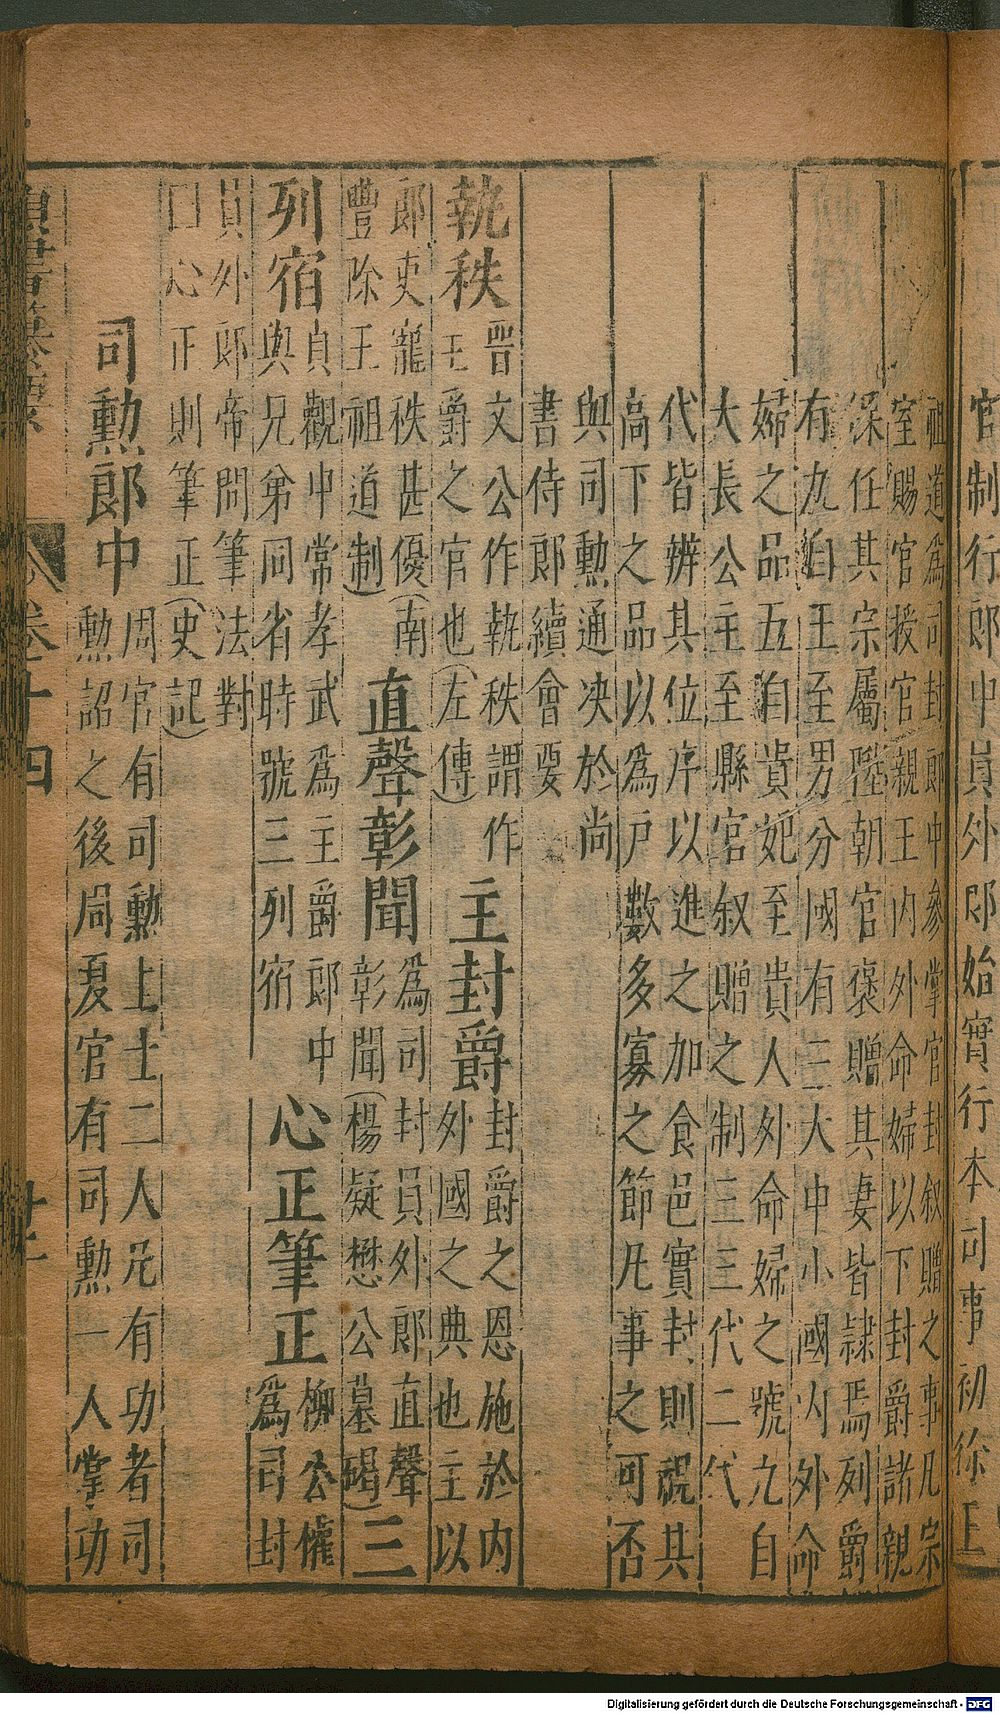 官制行郎中員外郎始實行本司事初除王
祖道爲司封郎中參掌官封叙贈之事凡宗
室賜官授官親王內外命婦以下封爵諸親
深任其宗屬陞朝官褒贈其妻皆隷焉列爵
有九自王至男分國有三大中小國以外命
婦之品五自貴妃至貴人外命婦之號九自
大長公主至縣官叙贈之制三三代二代
代皆辨其位序以進之加食邑實封則視其
高下之品以爲戶數多寡之節凡事之可否
與司勲通决於尚
書侍郎續會要
執秩
晋文公作執秩謂作
主爵之官也(左傳)
主封爵
封爵之恩施於內
外國之典也主以
郎吏寵秩甚優(南
豐除王祖道制)
直聲彰聞
爲司封員外郎直聲
彰聞(楊凝懋公墓碣)
三
列宿
貞觀中常孝武爲主爵郎中
與兄弟同省時號三列宿
心正筆正
柳公權
爲司封
員外郎帝問筆法對
曰心正則筆正(史記)
司勲郎中
周官有司勲上士二人凡有功者司
勲詔之後周夏官有司勲一人掌功
卷十四
Digitalisierung gefördert durch die Deutsche Forschungsgemeinschaft - DFG